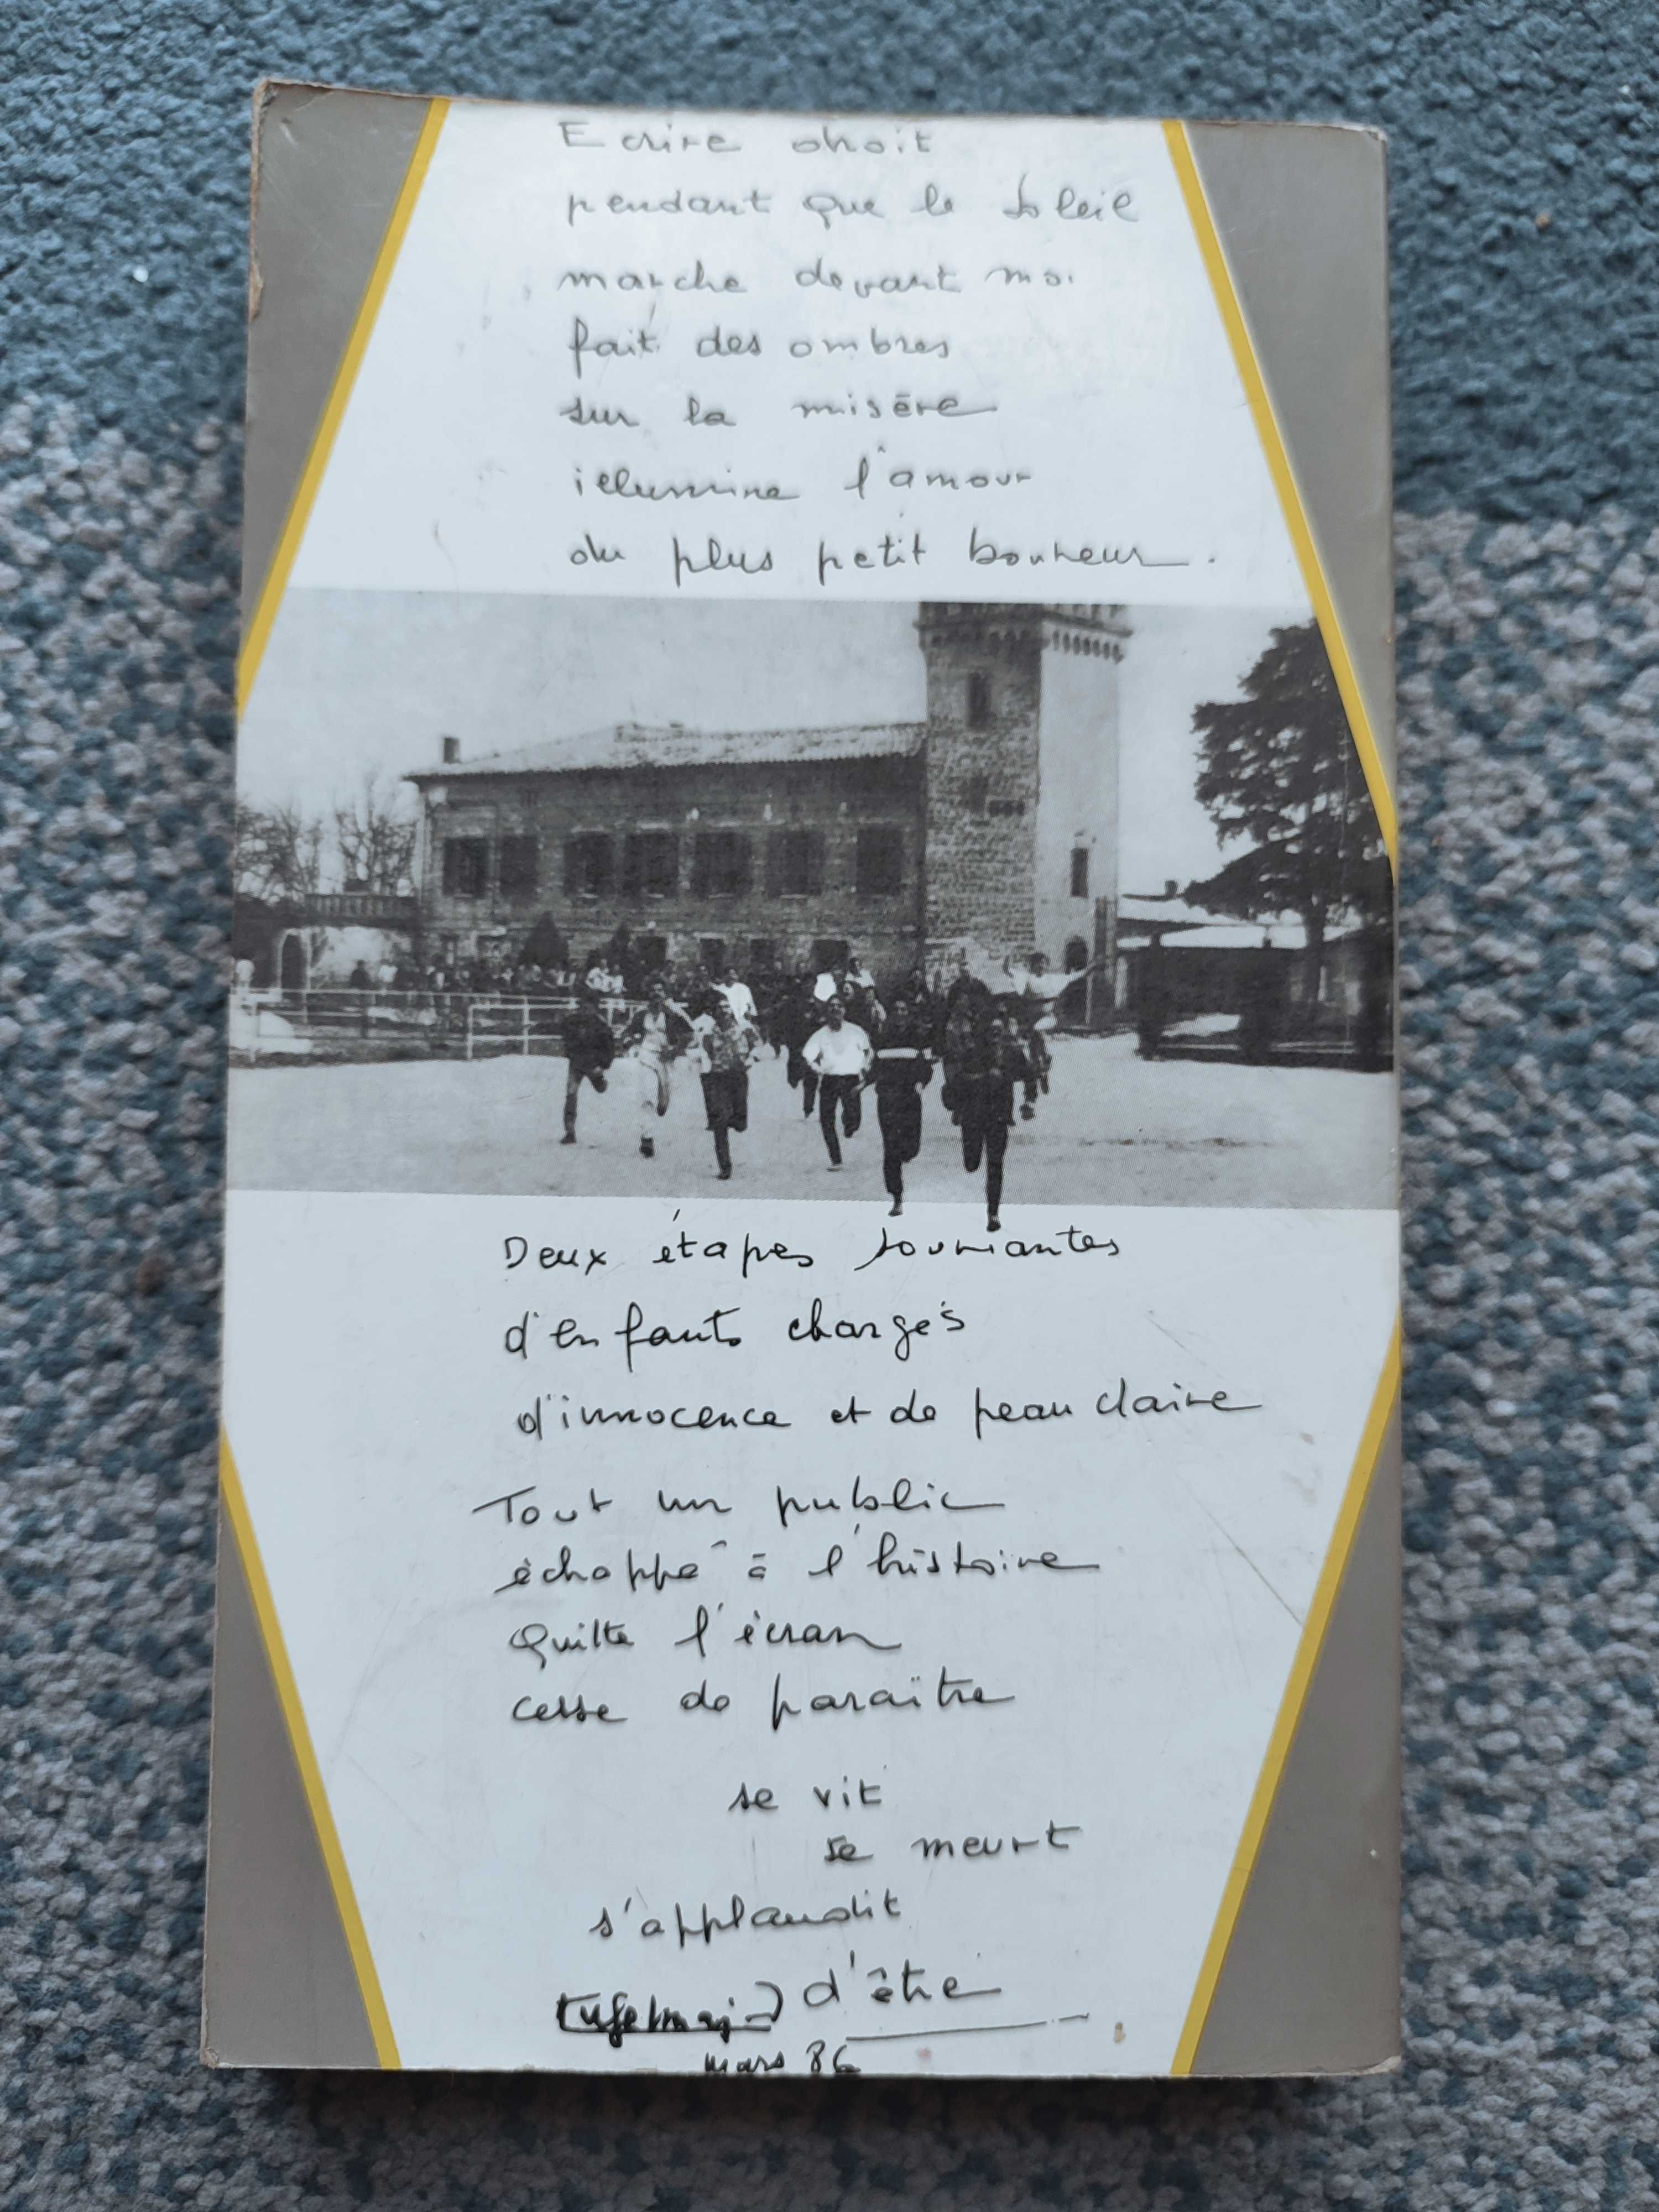 Ecrire droit
pendant que le soleil
marche devant moi
fait des ombres
sur la misère
illumine l'amour
du plus petit bonheur.
Deux étapes souriantes
d'enfants chargés
d'innocence et de peau claire
Tout un public
échappé à l'histoire
Quitte l'écran
cesse de paraître
se vit
se meurt
s'applaudit
d'être
mars 86